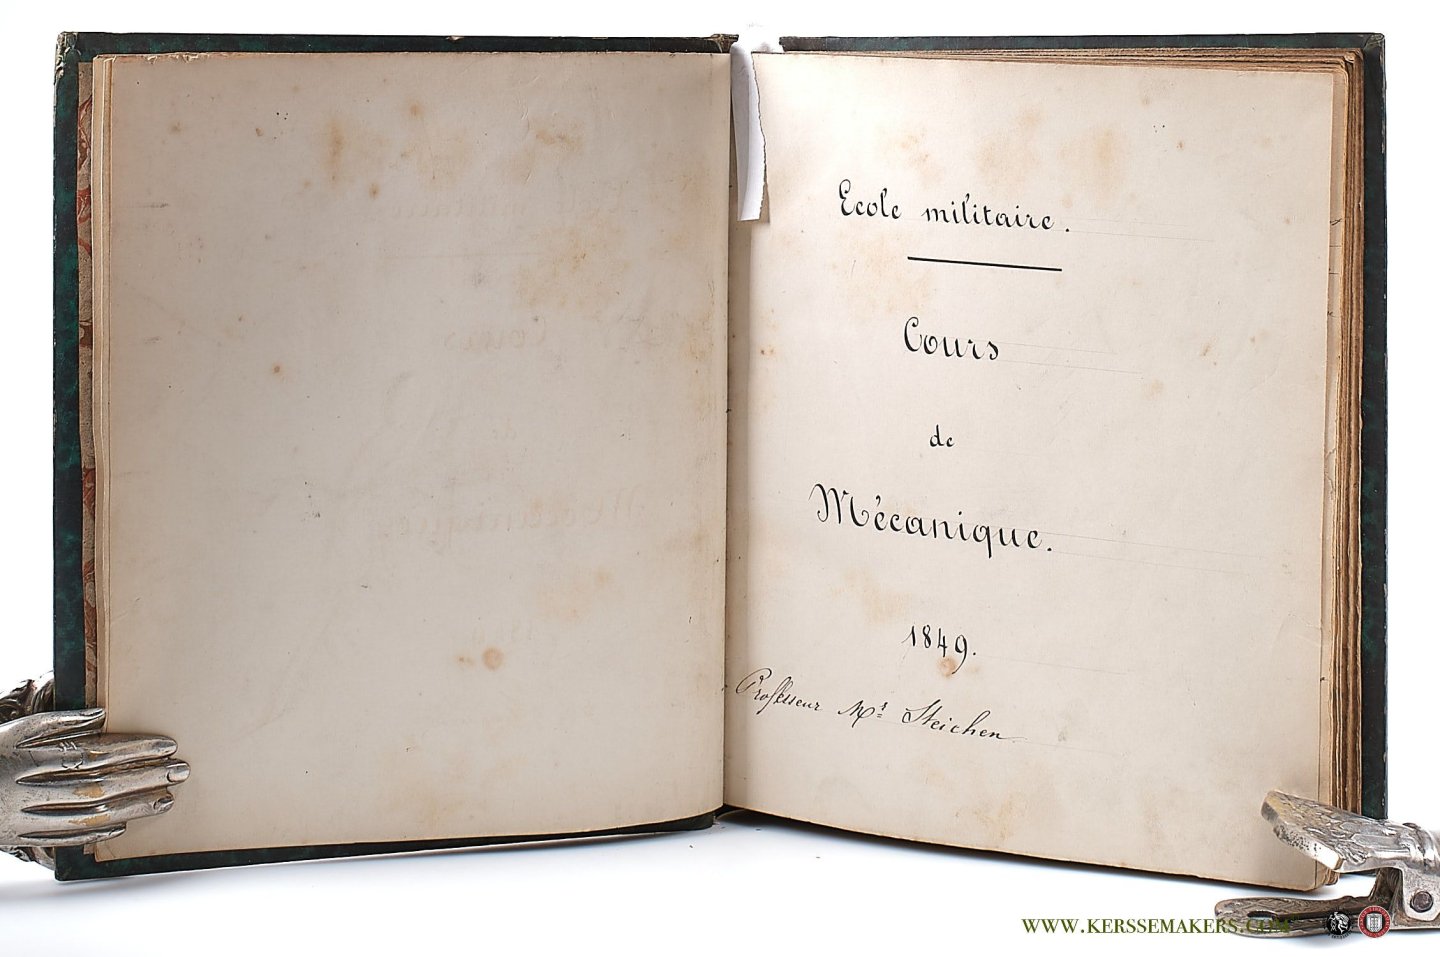 Ecole militaire.
Cours
de
Mécanique.
1849.
Professeur Mr Steichen
WWW.KERSSEMAKERS.COM